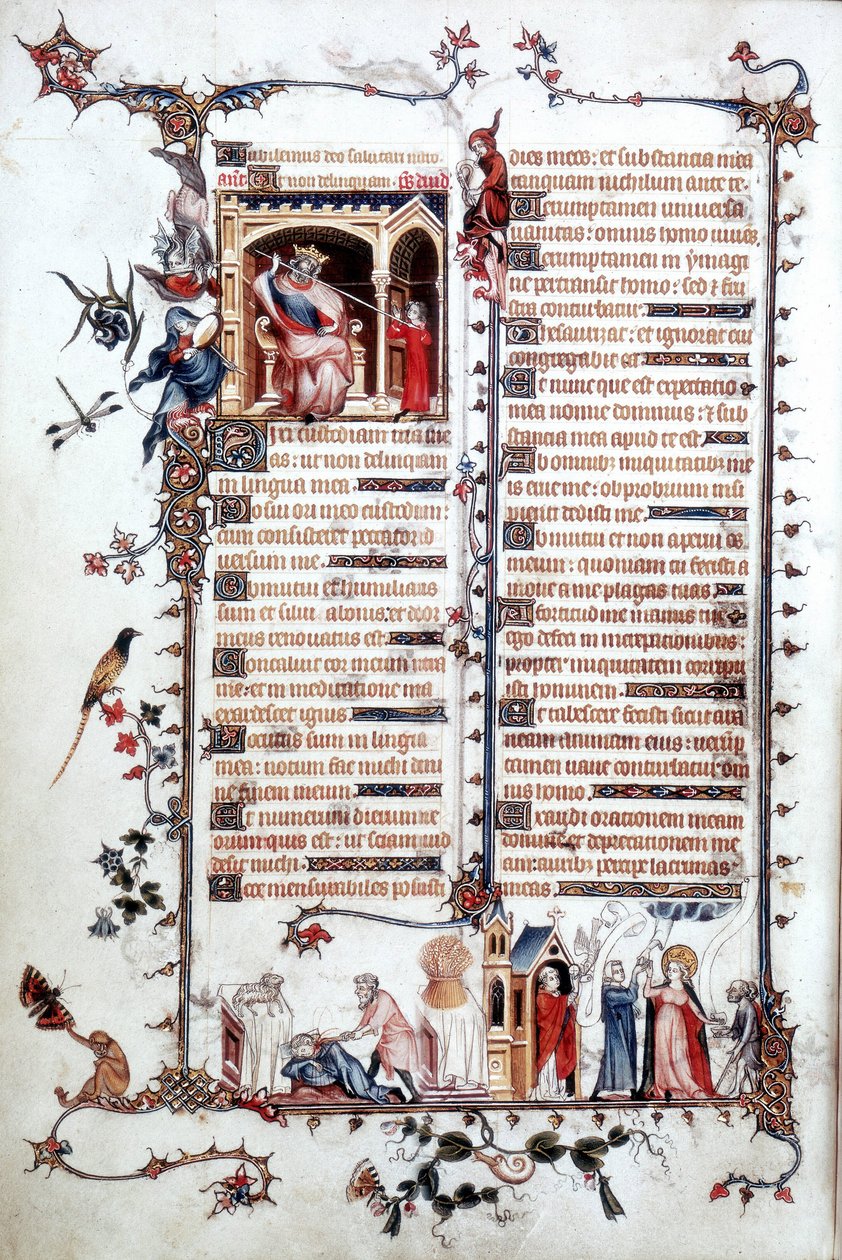 Iubilemus deo salutari nro.
ant. Ut non delinquam. ps dauid.
Dixi custodiam uias me
as: ut non delinquam
in lingua mea.
Posui ori meo custodiam:
cum consisteret peccator ad
uersum me.
Obmutui et humiliatus
sum et silui a bonis: et dolor
meus renouatus est.
Concaluit cor meum intra
me: et in meditatione mea
exardescet ignis.
Locutus sum in lingua
mea: notum fac michi domi
ne finem meum.
Et numerum dierum me
orum quis est: ut sciam quid
desit michi.
Ecce mensurabiles posuisti
dies meos: et substancia mea
tanquam nichilum ante te.
Uerumptamen uniuersa
uanitas: omnis homo uiuens.
Uerumptamen in ymagi
ne pertransit homo: sed et frus
tra conturbatur.
Thesaurizat: et ignorat cui
congregabit ea.
Et nunc que est expectatio
mea nonne dominus: et sub
stancia mea apud te est.
Ab omnibus iniquitatibus me
is erue me: obprobrium insi
pienti dedisti me.
Obmutui et non aperui os
meum: quoniam tu fecisti a
moue a me plagas tuas.
A fortitudine manus tue
ego defeci in increpationibus:
propter iniquitatem corripu
isti hominem.
Et tabescere fecisti sicut ara
neam animam eius: uerump
tamen uane conturbatur om
nis homo.
Exaudi orationem meam
domine et deprecationem me
am: auribus percipe lacrimas
meas